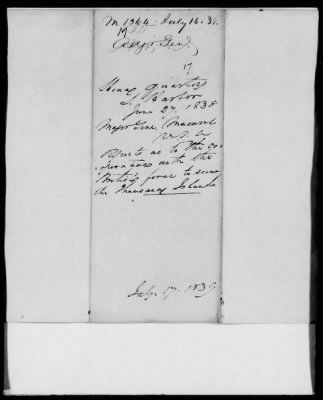 M 1344 - July 16. 38.
Adjt. Genl.
17
Head Quarters
S. Harbor
June 27. 1838
Major Genl. Macomb
as to the co-
operations with the
British force to scour
the Thousand Islands
July. 17. 1838